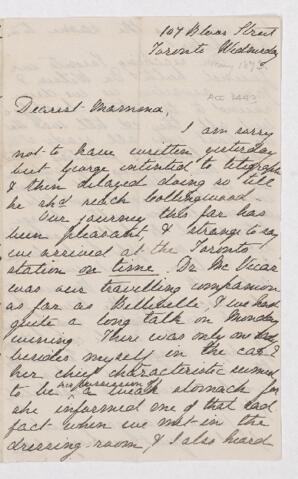 107 Bloor Street
Toronto Wednesday
1873.
Acc 3442
Dearest Mamma,
I am sorry
not to have written yesterday
but George intended to telegraph
& then delayed doing so till
he shd reach Collingwood.
Our journey thus far has
been pleasant & strange to say
we arrived at the Toronto
station on time. Dr McVicar
was our travelling companion
as far as Belleville & we had
quite a long talk on Monday
evening. There was only one lady
besides myself in the car &
her chief characteristic seemed
to be the possession of a weak stomach for
she informed me of that sad
fact when we met in the
dressing-room, & I also heard